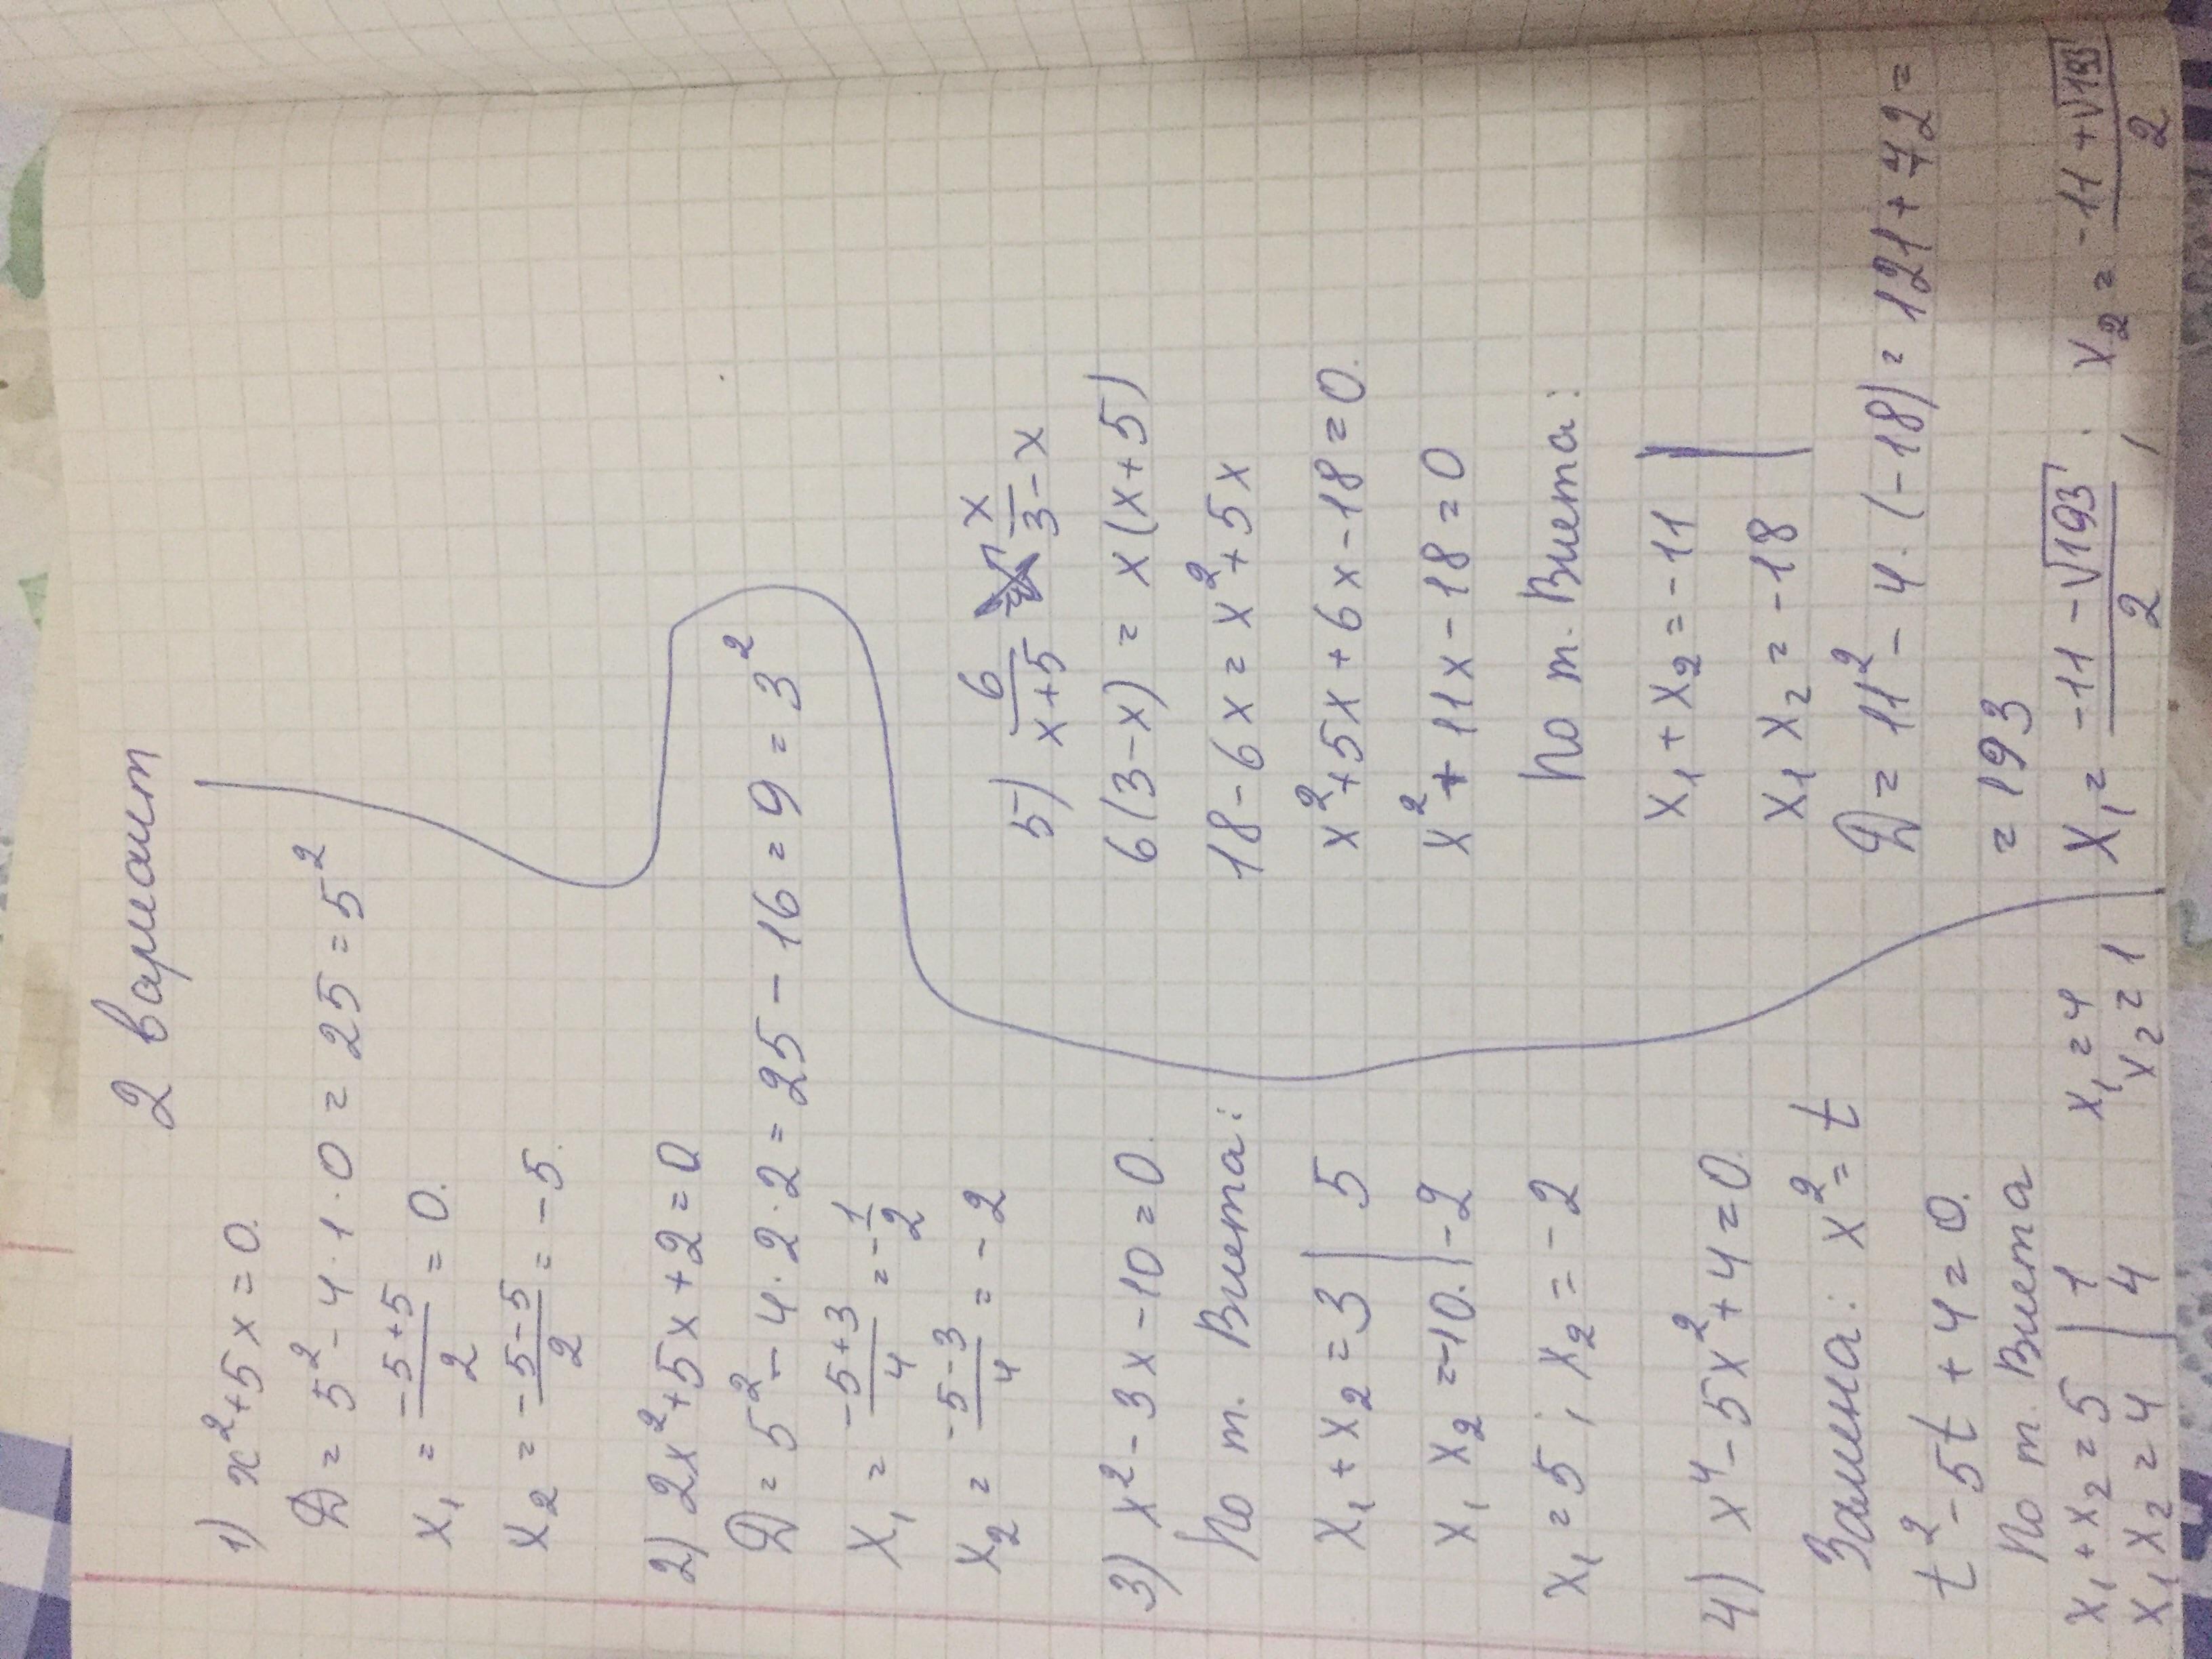 2 вариант
1) x²+5x=0.
D=5²-4·1·0=25=5²
x₁=(-5+5)/2=0.
x₂=(-5-5)/2=-5.
2) 2x²+5x+2=0
D=5²-4·2·2=25-16=9=3²
x₁=(-5+3)/4=-1/2
x₂=(-5-3)/4=-2
3) x²-3x-10=0.
По т. Виета:
x₁+x₂=3 | 5
x₁x₂=-10. | -2
x₁=5; x₂=-2
4) x⁴-5x²+4=0.
Замена: x²=t
t²-5t+4=0.
По т. Виета
x₁+x₂=5 | 1
x₁x₂=4 | 4
x₁=4
x₂=1
5) 6/(x+5) x/(3-x)
6(3-x)=x(x+5)
18-6x=x²+5x
x²+5x+6x-18=0.
x²+11x-18=0
По т. Виета:
x₁+x₂=-11 |
x₁x₂=-18 |
D=11²-4·(-18)=121+72=
=193
x₁=(-11-√193)/2; x₂=(-11+√193)/2